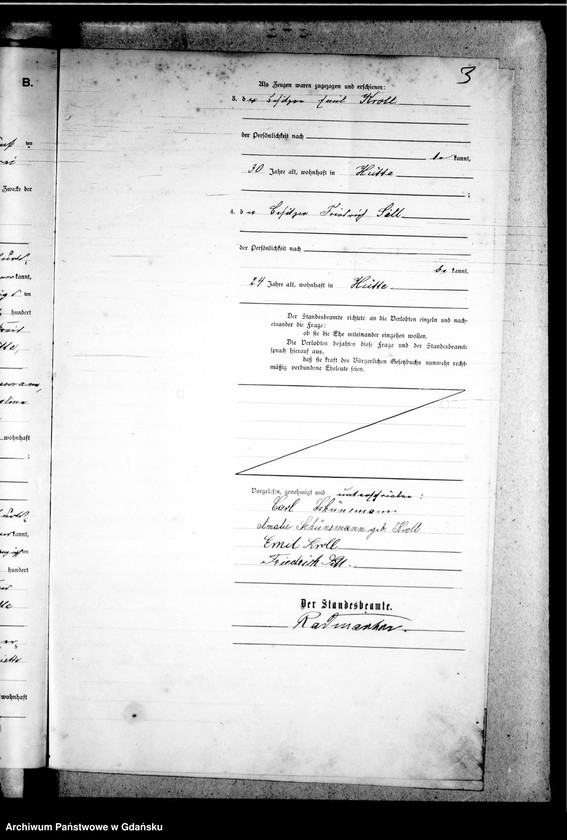 B.
3
Als Zeugen waren zugezogen und erschienen:
3. der Besitzer Emil Kroll
der Persönlichkeit nach
be kannt,
30 Jahre alt, wohnhaft in Hütte
;
4. der Besitzer Friedrich Sell
der Persönlichkeit nach
be kannt,
24 Jahre alt, wohnhaft in Hütte
Der Standesbeamte richtete an die Verlobten einzeln und nach-
einander die Frage:
ob sie die Ehe miteinander eingehen wollen.
Die Verlobten bejahten diese Frage und der Standesbeamte
sprach hierauf aus,
daß sie kraft des Bürgerlichen Gesetzbuchs nunmehr recht-
mäßig verbundene Eheleute seien.
Vorgelesen, genehmigt und unterschrieben:
Carl Schünemann
Amalie Schünemann geb. Kroll
Emil Kroll
Friedrich Sell.
Der Standesbeamte.
ten
Zwecke der
kannt,
ten
hundert
wohnhaft
;
kannt,
hundert
wohnhaft
Archiwum Państwowe w Gdańsku